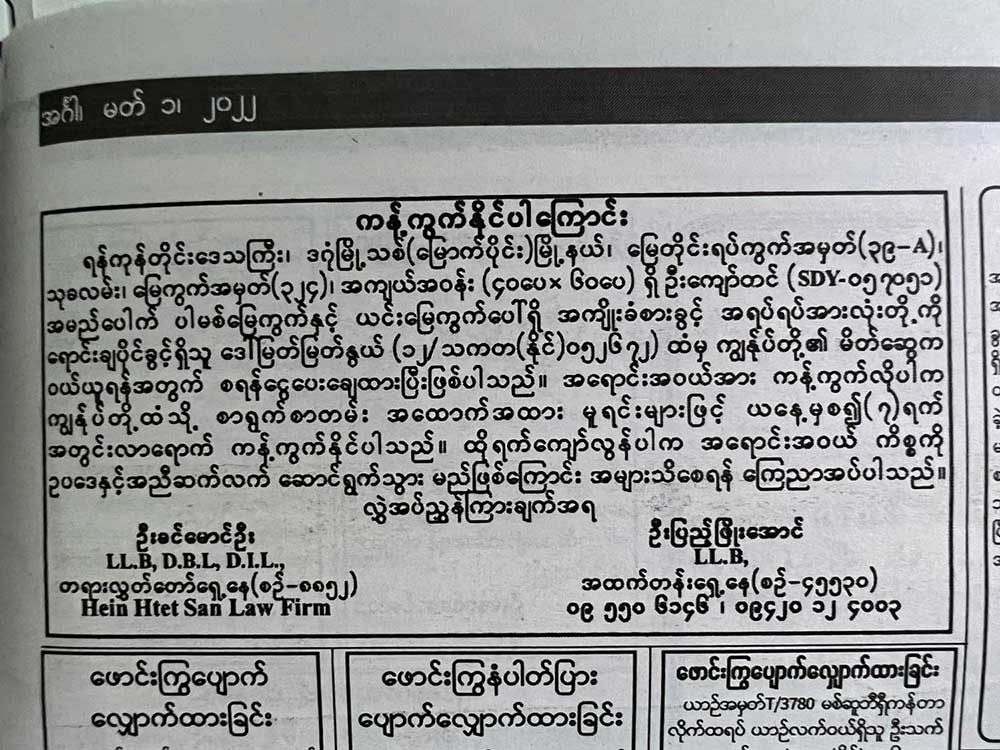 အင်္ဂါ၊ မတ် ၁၊ ၂၀၂၂
ကန့်ကွက်နိုင်ပါကြောင်း
ရန်ကုန်တိုင်းဒေသကြီး၊ ဒဂုံမြို့သစ်(မြောက်ပိုင်း)မြို့နယ်၊ မြေတိုင်းရပ်ကွက်အမှတ်(၃၉-A)၊
သုဓလမ်း၊ မြေကွက်အမှတ်(၃၂၄)၊ အကျယ်အဝန်း (၄၀ပေ× ၆၀ပေ) ရှိ ဦးကျော်ထင် (SDY-၀၅၇၀၅၁)
အမည်ပေါက် ပါမစ်မြေကွက်နှင့် ယင်းမြေကွက်ပေါ်ရှိ အကျိုးခံစားခွင့် အရပ်ရပ်အားလုံးတို့ကို
ရောင်းချပိုင်ခွင့်ရှိသူ ဒေါ်မြတ်မြတ်နွယ် (၁၂/သကတ(နိုင်)၀၅၂၆၇၂) ထံမှ ကျွန်ုပ်တို့၏ မိတ်ဆွေက
ဝယ်ယူရန်အတွက် စရန်ငွေပေးချေထားပြီးဖြစ်ပါသည်။ အရောင်းအဝယ်အား ကန့်ကွက်လိုပါက
ကျွန်ုပ်တို့ထံသို့ စာရွက်စာတမ်း အထောက်အထား မူရင်းများဖြင့် ယနေ့မှစ၍(၇)ရက်
အတွင်းလာရောက် ကန့်ကွက်နိုင်ပါသည်။ ထိုရက်ကျော်လွန်ပါက အရောင်းအဝယ် ကိစ္စကို
ဥပဒေနှင့်အညီဆက်လက် ဆောင်ရွက်သွား မည်ဖြစ်ကြောင်း အများသိစေရန် ကြေညာအပ်ပါသည်။
လွှဲအပ်ညွှန်ကြားချက်အရ
ဦးခင်မောင်ဦး
LL.B, D.B.L, D.I.L.,
တရားလွှတ်တော်ရှေ့နေ(စဉ်-၈၈၅၂)
Hein Htet San Law Firm
ဦးပြည့်ဖြိုးအောင်
LL.B,
အထက်တန်းရှေ့နေ(စဉ်-၄၅၅၃၀)
၀၉ ၅၅၀ ၆၁၄၆ ၊ ၀၉၄၂၀ ၁၂ ၄၀၀၃
ဖောင်းကြွပျောက်
လျှောက်ထားခြင်း
ဖောင်းကြွနံပါတ်ပြား
ပျောက်လျှောက်ထားခြင်း
ဖောင်းကြွပျောက်လျှောက်ထားခြင်း
ယာဉ်အမှတ်T/3780 မစ်ဆူဘီရှီကန်တာ
လိုက်ထရပ် ယာဉ်လက်ဝယ်ရှိသူ ဦးသက်